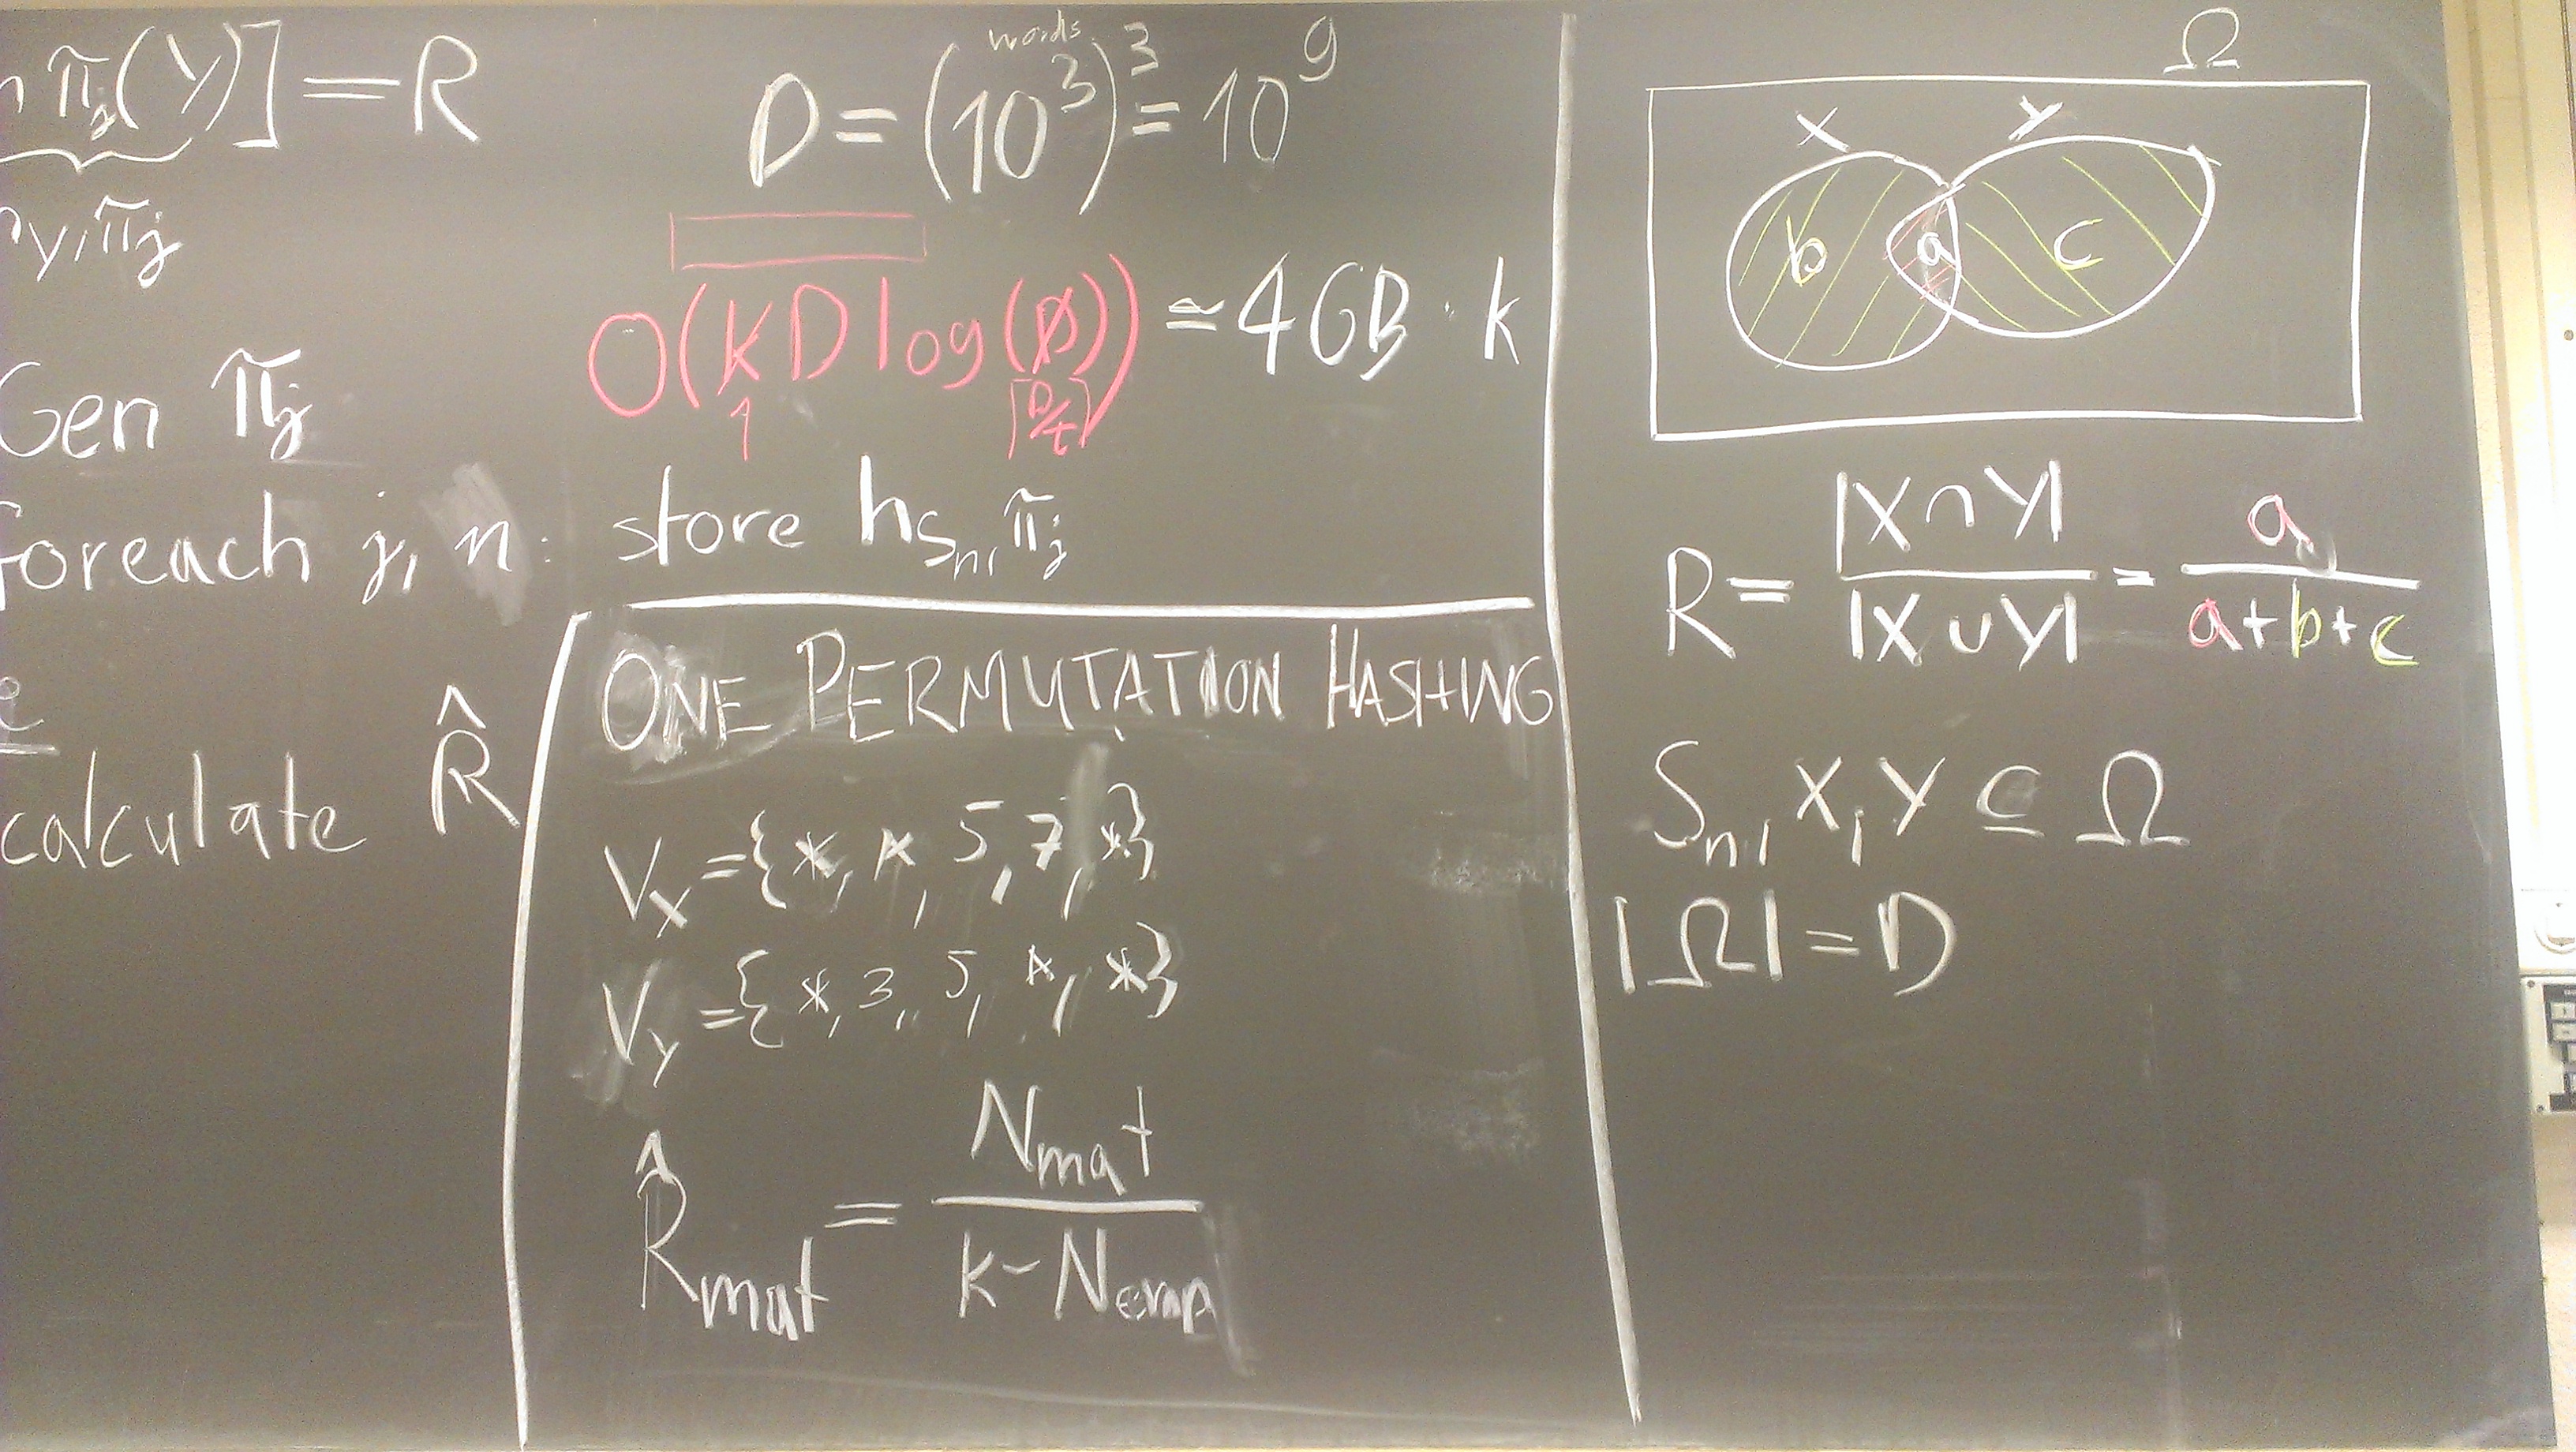 π_j(Y)] = R
y, π_j
Gen π_j
foreach j, n: store h_{S_n, π_j}
calculate R̂
words
D = (10^3)^3 = 10^9
O(k D log(D)) ≃ 4GB · k
1 ⌈D/t⌉
ONE PERMUTATION HASHING
V_X = {*, *, 5, 7, *}
V_Y = {*, 3, 5, *, *}
R̂_mat = N_mat / (k - N_emp)
Ω
X Y
b a c
R = |X ∩ Y| / |X ∪ Y| = a / (a+b+c)
S_n, X, Y ⊆ Ω
|Ω| = D